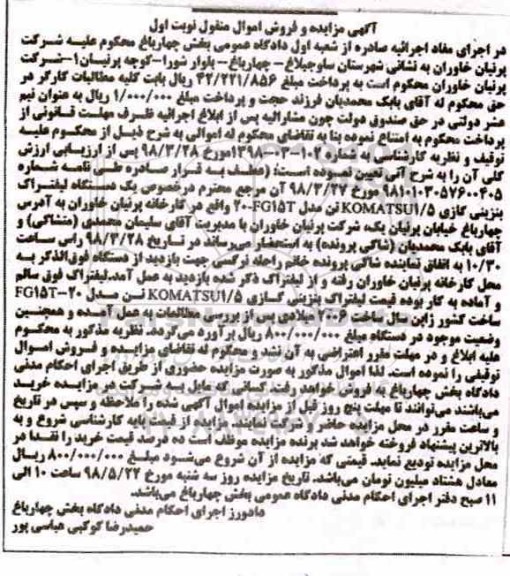 آگهی مزایده و فروش اموال منقول نوبت اول
در اجرای مفاد اجرائیه صادره از شعبه اول دادگاه عمومی بخش چهارباغ محکوم علیه شرکت
پرنیان خاوران به نشانی شهرستان ساوجبلاغ- چهارباغ- بلوار شورا-کوچه پرنیان۱-شرکت
پرنیان خاوران محکوم است به پرداخت مبلغ ۴۲/۲۲۱/۸۵۶ ریال بابت کلیه مطالبات کارگر در
حق محکوم له آقای بابک محمدیان فرزند حجت و پرداخت مبلغ ۱/۰۰۰/۰۰۰ ریال به عنوان نیم
عشر دولتی در حق صندوق دولت چون مشارالیه پس از ابلاغ اجرائیه ظرف مهلت قانونی از
پرداخت محکوم به امتناع نموده بنا به تقاضای محکوم له اموالی به شرح ذیل از محکوم علیه
توقیف و نظریه کارشناسی به شماره ۱۰۲-۰۳-۱۳۹۸مورخ ۹۸/۳/۲۸ پس از ارزیابی ارزش
کلی آن را به شرح آتی تعیین نموده است: (عطف به قرار صادره طی نامه شماره
۹۸۱۰۱۰۳۰۵۷۶۰۰۴۰۵ مورخ ۹۸/۳/۲۷ آن مرجع محترم درخصوص یک دستگاه لیفتراک
بنزینی گازی KOMATSU۱/۵ تن مدل ۲۰-FG۱۵T واقع در کارخانه پرنیان خاوران به آدرس
چهارباغ خیابان پرنیان یک، شرکت پرنیان خاوران با مدیریت آقای سلیمان محمدی (متشاکی) و
آقای بابک محمدیان (شاکی پرونده) به استحضار می‌رساند در تاریخ ۹۸/۳/۲۸ راس ساعت
۱۰/۳۰ به اتفاق نماینده شاکی پرونده خانم راحله نرگسی جهت بازدید از دستگاه فوق‌الذکر به
محل کارخانه پرنیان خاوران رفته و از لیفتراک ذکر شده بازدید به عمل آمد.لیفتراک فوق سالم
و آماده به کار بوده قیمت لیفتراک بنزینی گازی KOMATSU۱/۵ تن مدل ۲۰-FG۱۵T
ساخت کشور ژاپن سال ساخت ۲۰۰۶ میلادی پس از بررسی مطالعات به عمل آمده و همچنین
وضعیت موجود در دستگاه مبلغ ۸۰۰/۰۰۰/۰۰۰ ریال برآورد می‌گردد. نظریه مذکور به محکوم
علیه ابلاغ و در مهلت مقرر اعتراضی به آن نشد و محکوم له تقاضای مزایده و فروش اموال
توقیفی را نموده است. لذا اموال مذکور به صورت مزایده حضوری از طریق اجرای احکام مدنی
دادگاه بخش چهارباغ به فروش خواهد رفت کسانی که مایل به شرکت در مزایده خرید
می‌باشند می‌توانند تا مهلت پنج روز قبل از مزایده اموال آگهی شده را ملاحظه و سپس در تاریخ
و ساعت مقرر در محل مزایده حاضر و شرکت نمایند. مزایده از قیمت پایه کارشناسی شروع و به
بالاترین پیشنهاد فروخته خواهد شد برنده مزایده موظف است ده درصد قیمت خرید را نقدا در
محل مزایده تودیع نماید. قیمتی که مزایده از آن شروع می‌شود مبلغ ۸۰۰/۰۰۰/۰۰۰ ریال
معادل هشتاد میلیون تومان می‌باشد. تاریخ مزایده روز سه شنبه مورخ ۹۸/۵/۲۲ ساعت ۱۰ الی
۱۱ صبح دفتر اجرای احکام مدنی دادگاه عمومی بخش چهارباغ می‌باشد.
دادورز اجرای احکام مدنی دادگاه بخش چهارباغ
حمیدرضا کوکبی عباسی پور